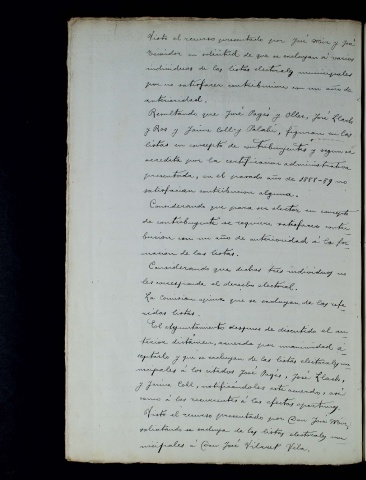 Visto el recurso presentado por José Mir y José
en solicitud de que se excluyan á varios
individuos de las listas electorales municipales
por no satisfacer contribucion con un año de
anterioridad.
Resultando que José Pagés y Oller, José Llach
y Ros y Jaime Coll y Palabi, figuran en las
listas en concepto de contribuyentes y segun se
acredita por la certificacion administrativa
presentada, en el pasado año de 1888-89 no
satisfacian contribucion alguna.
Considerando que para ser elector en concepto
de contribuyente se requiere satisfacer contri-
bucion con un año de anterioridad á la for-
macion de las listas.
Considerando que dichos tres individuos no
les corresponde el derecho electoral.
La Comision opina que se excluyan de las refe-
ridas listas.
El Ayuntamiento despues de discutido el an-
terior dictámen, acuerda por unanimidad, a-
ceptarlo y que se excluyan de las listas electorales mu-
nicipales á los citados José Pagés, José Llach,
y Jaime Coll, notificándoles este acuerdo, asi
como á los recurrentes á los efectos oportunos.
Visto el recurso presentado por Don José Mir,
solicitando se excluyan de las listas electorales mu-
nicipales á Don José Vilaret Vila.